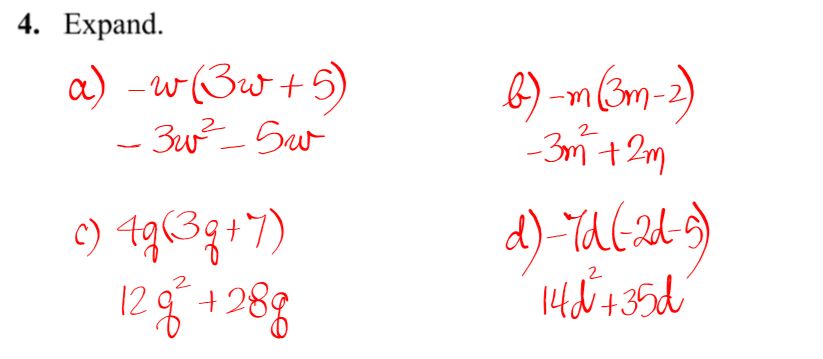 4. Expand.
a) -w(3w+5)
-3w²-5w
b) -m(3m-2)
-3m²+2m
c) 4q(3q+7)
12q²+28q
d) -7d(-2d-5)
14d²+35d